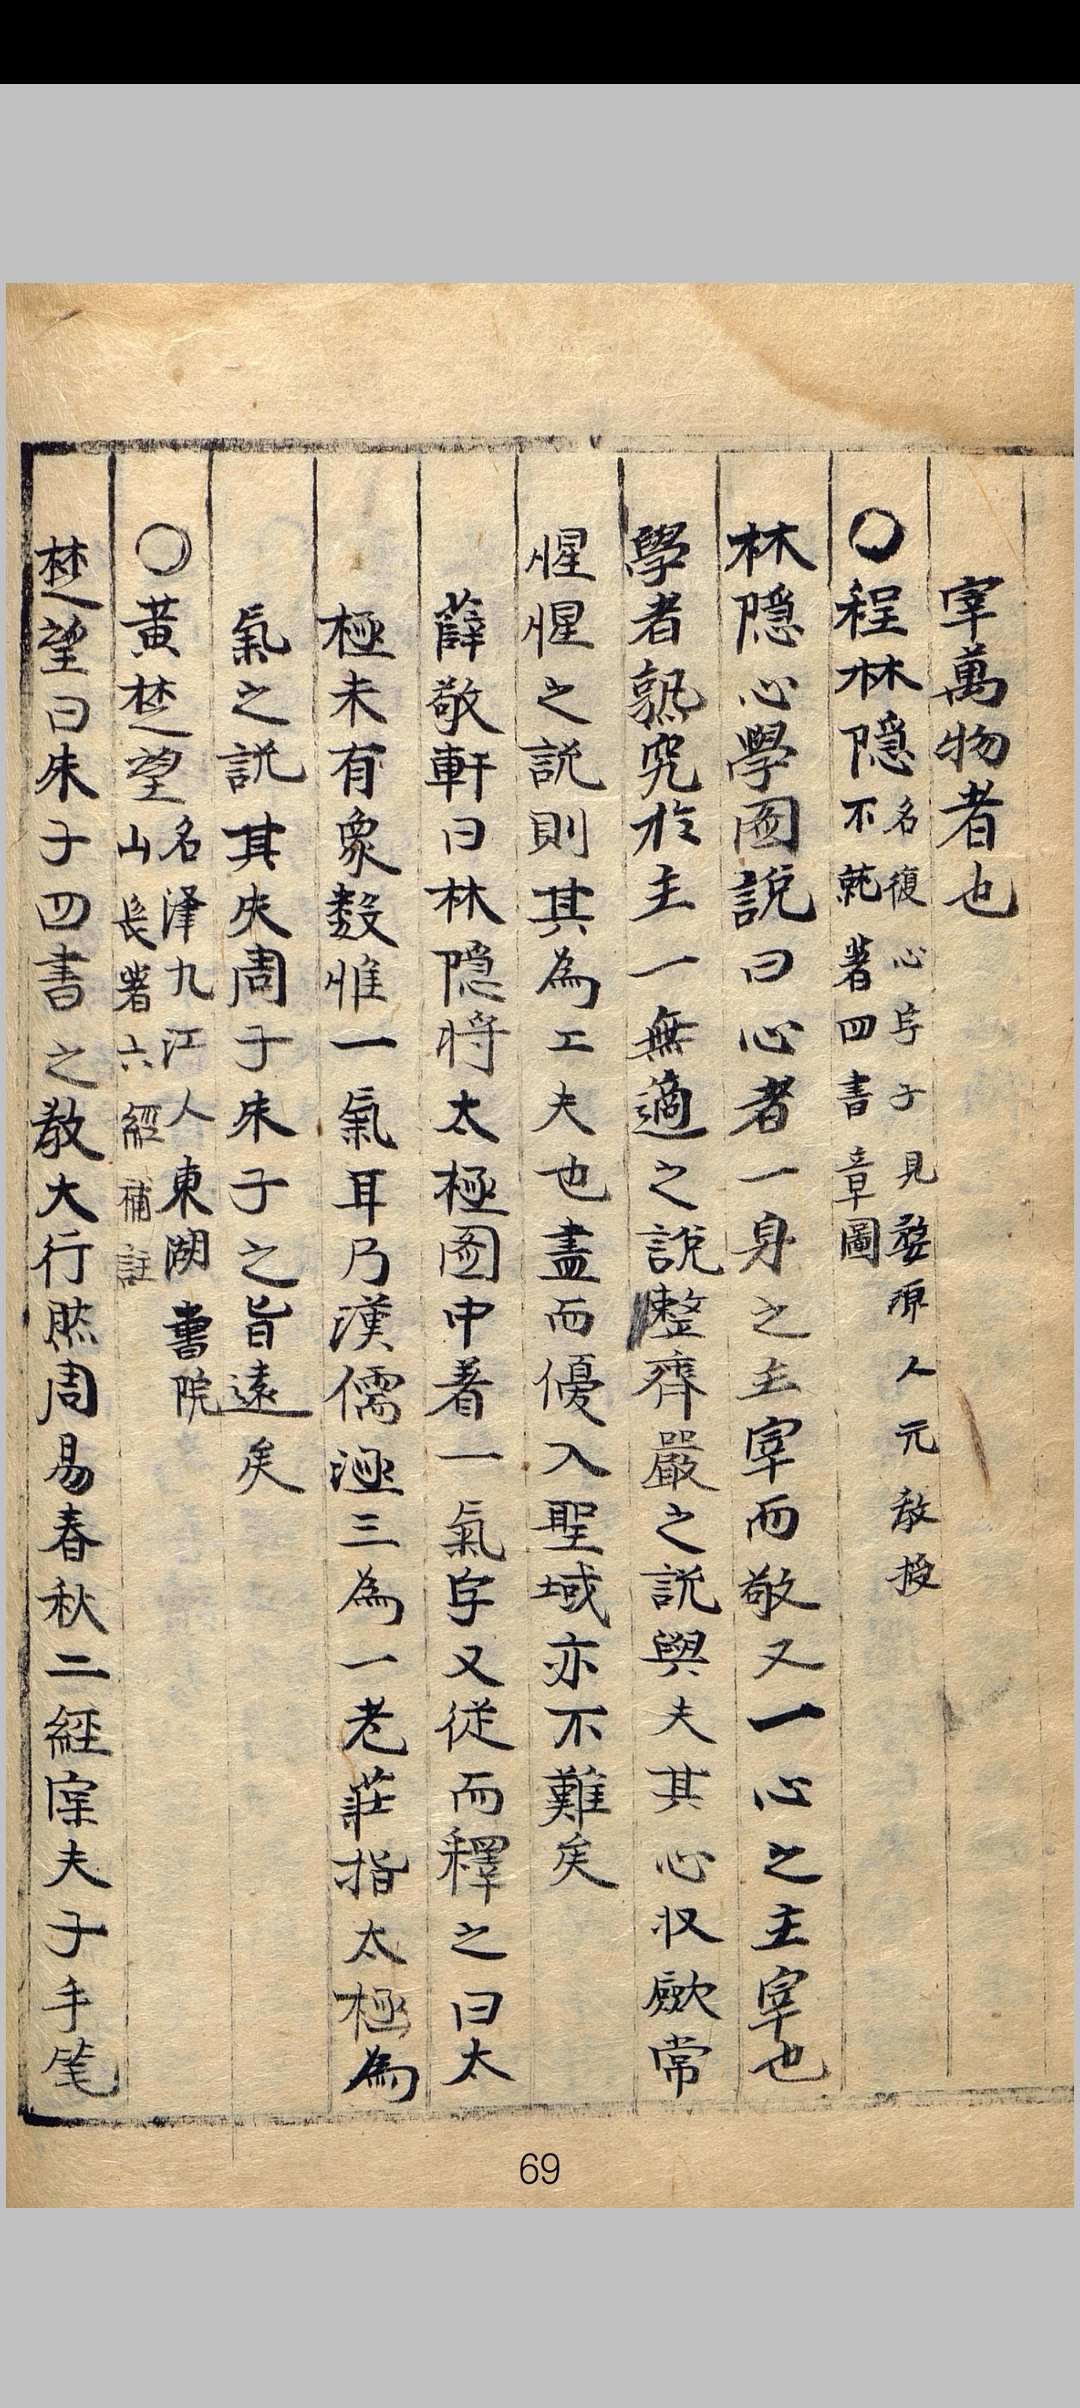 宰萬物者也
○程林隠名復心字子見婺源人元教授不就著四書章圖
林隠心學圖說曰心者一身之主宰而敬又一心之主宰也
學者熟究於主一無適之說整齊嚴之説與夫其心収歛常
惺惺之説則其為工夫也盡而優入聖域亦不難矣
薛敬軒曰林隠將太極圖中著一氣字又從而釋之曰太
極未有象數惟一氣耳乃漢儒涵三為一老莊指太極為
氣之説其失周子朱子之旨遠矣
○黄楚望名澤九江人東湖書院山長著六經補註
楚望曰朱子四書之教大行然周易春秋二經寔夫子手笔
69